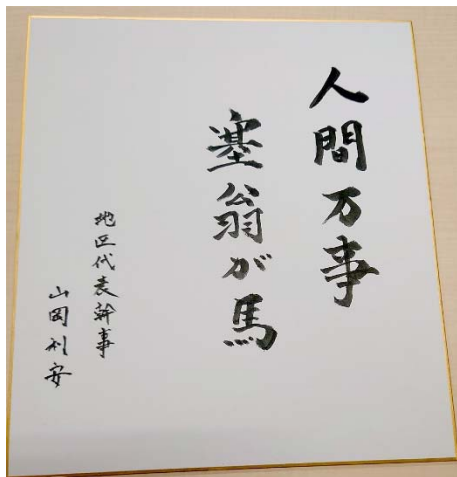 人間万事
塞翁が馬
地区代表幹事
山岡利安